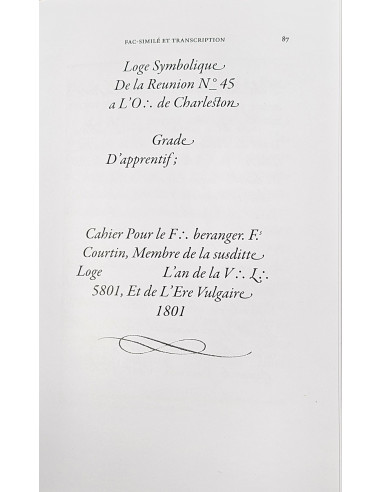 FAC-SIMILÉ ET TRANSCRIPTION 87
Loge Symbolique
De la Reunion Nº 45
a L'O∴ de Charleston
Grade
D'apprentif ;
Cahier Pour le F∴ beranger. F.s
Courtin, Membre de la susditte
Loge L'an de la V∴ L∴
5801, Et de L'Ere Vulgaire
1801